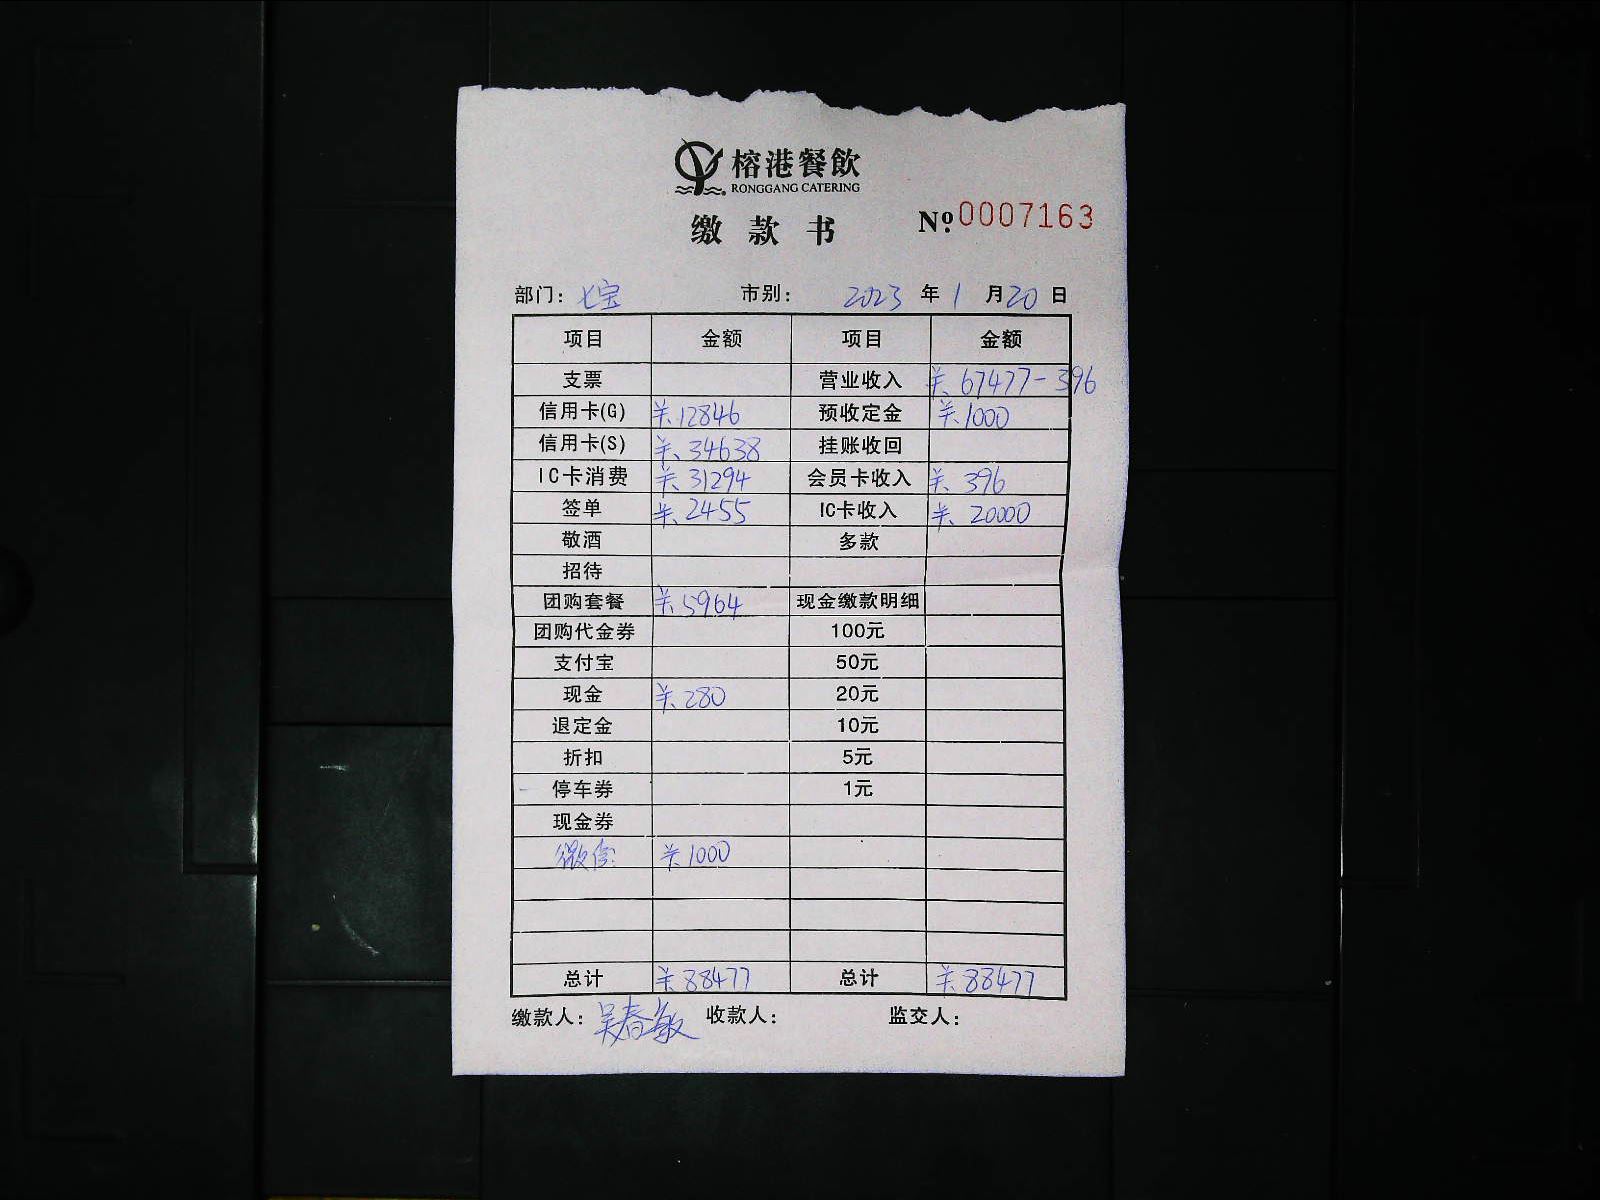 榕港餐飲
RONGGANG CATERING
缴款书 Nº 0007163
部门: 七宝 市别: 2023 年 1 月 20 日
项目 金额 项目 金额
支票 营业收入 ¥67477-396
信用卡(G) ¥12846 预收定金 ¥1000
信用卡(S) ¥34638 挂账收回
IC卡消费 ¥31294 会员卡收入 ¥396
签单 ¥2455 IC卡收入 ¥20000
敬酒 多款
招待
团购套餐 ¥5964 现金缴款明细
团购代金券 100元
支付宝 50元
现金 ¥280 20元
退定金 10元
折扣 5元
停车券 1元
现金券
微信 ¥1000
总计 ¥88477 总计 ¥88477
缴款人: 吴春敏 收款人: 监交人: